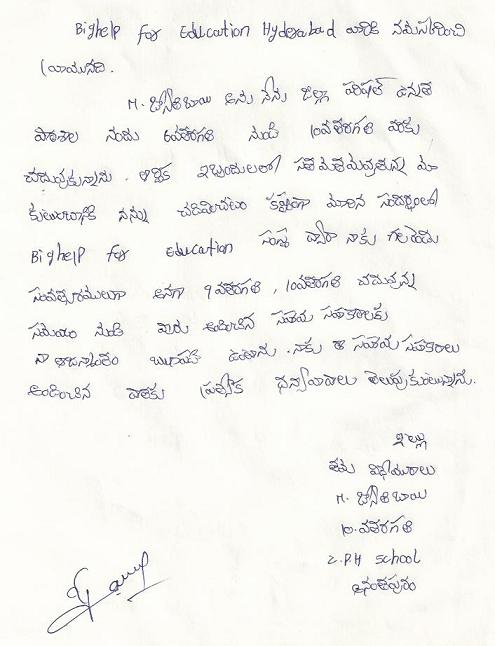 Bighelp for Education Hyderabad వారికి నమస్కరించి
వ్రాయునది.
M. జ్యోతి బాయి అను నేను జిల్లా పరిషత్ ఉన్నత
పాఠశాల నందు 6వతరగతి నుండి 10వతరగతి వరకు
చదువుకున్నాను. ఆర్థిక ఇబ్బందులలో సతమతమవుతున్న మా
కుటుంబానికి నన్ను చదివించటం కష్టంగా మారిన సందర్భంలో
Bighelp for Education సంస్థ ద్వారా నాకు గత రెండు
సంవత్సరములుగా అనగా 9వతరగతి, 10వతరగతి చదువుతున్న
సమయం నుండి వారు అందించిన సహాయ సహకారాలకు
నా జీవితాంతం ఋణపడి ఉంటాను. నాకు ఈ సహాయ సహకారాలు
అందించిన వారికి ప్రత్యేక ధన్యవాదాలు తెలుపుకుంటున్నాను.
ఇట్లు
తమ విధేయురాలు
M. జ్యోతి బాయి
10వతరగతి
Z.P.H school
అనంతపురం